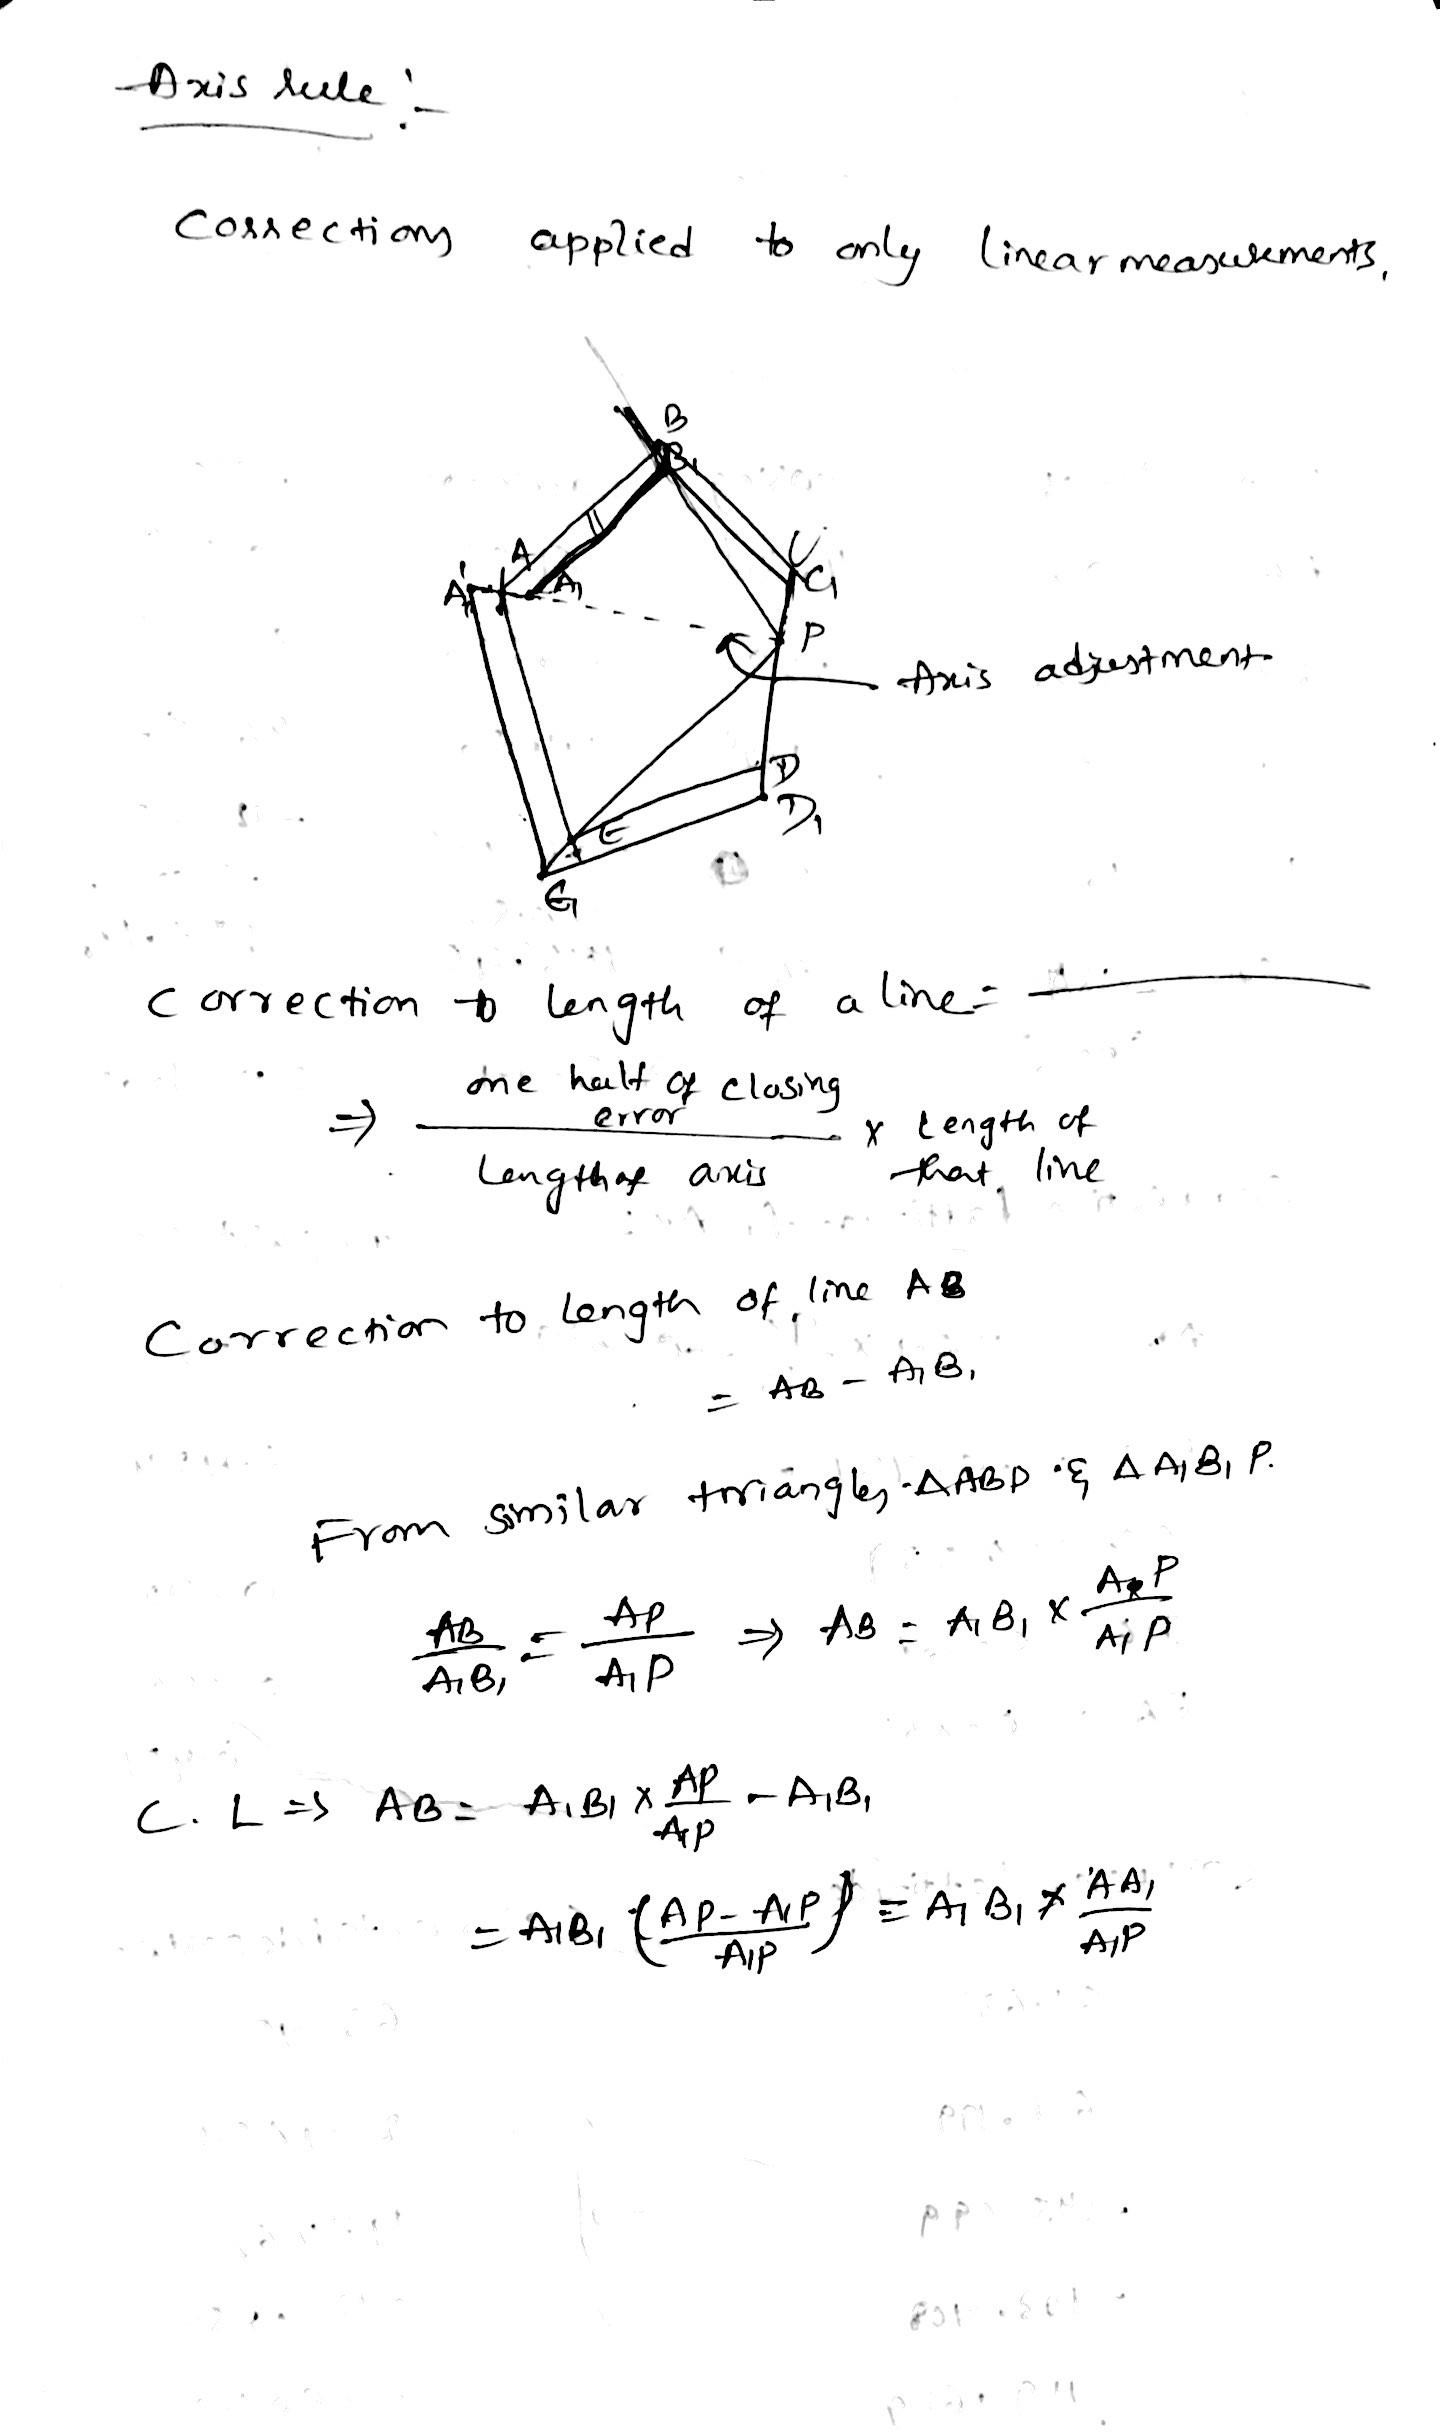 Axis rule :-
Corrections applied to only linear measurements.
B
B₁
A
A₁' A₁
C
C₁
P
Axis adjustment
D
D₁
E
E₁
Correction to length of a line =
⇒ one half of closing error / Length of axis x Length of that line
Correction to length of line AB
= AB - A₁B₁
From similar triangles ΔABP & ΔA₁B₁P.
AB / A₁B₁ = AP / A₁P ⇒ AB = A₁B₁ x AP / A₁P
C.L ⇒ AB = A₁B₁ x AP / A₁P - A₁B₁
= A₁B₁ (AP - A₁P / A₁P) = A₁B₁ x AA₁ / A₁P